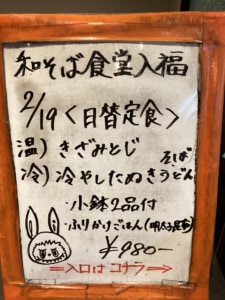 和そば食堂入福
2/19〈日替定食〉
温）きざみとじ
冷）冷やしたぬき そば うどん
・小鉢2品付
・ふりかけごはん(明太子昆布)
¥980-
＝入口はコチラ⇒